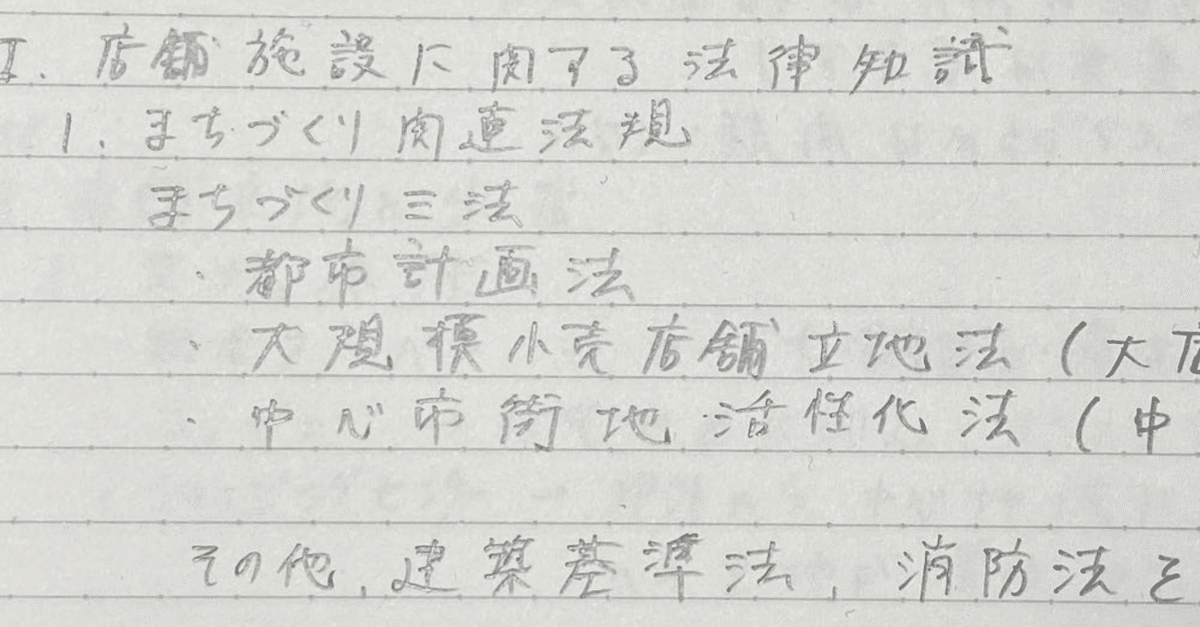 I. 店舗施設に関する法律知識
1. まちづくり関連法規
まちづくり三法
・都市計画法
・大規模小売店舗立地法(大店
・中心市街地活性化法(中
その他、建築基準法、消防法を